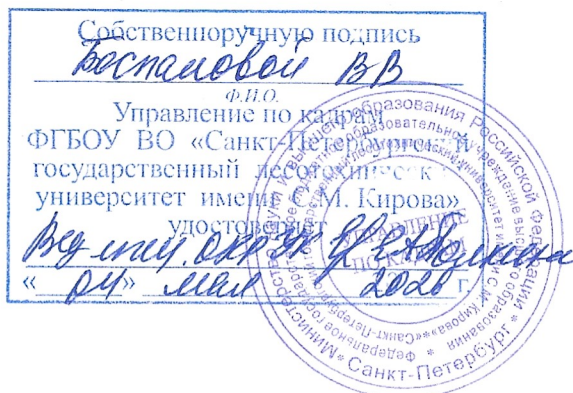 Собственноручную подпись
Беспаловой ВВ
Ф.И.О.
Управление по кадрам
ФГБОУ ВО «Санкт-Петербургский
государственный лесотехнический
университет имени С.М. Кирова»
удостоверяет
Вед
«04» мая 2026 г.
УПРАВЛЕНИЕ
ПО КАДРАМ
Министерство науки и высшего образования Российской Федерации
* Санкт-Петербург *